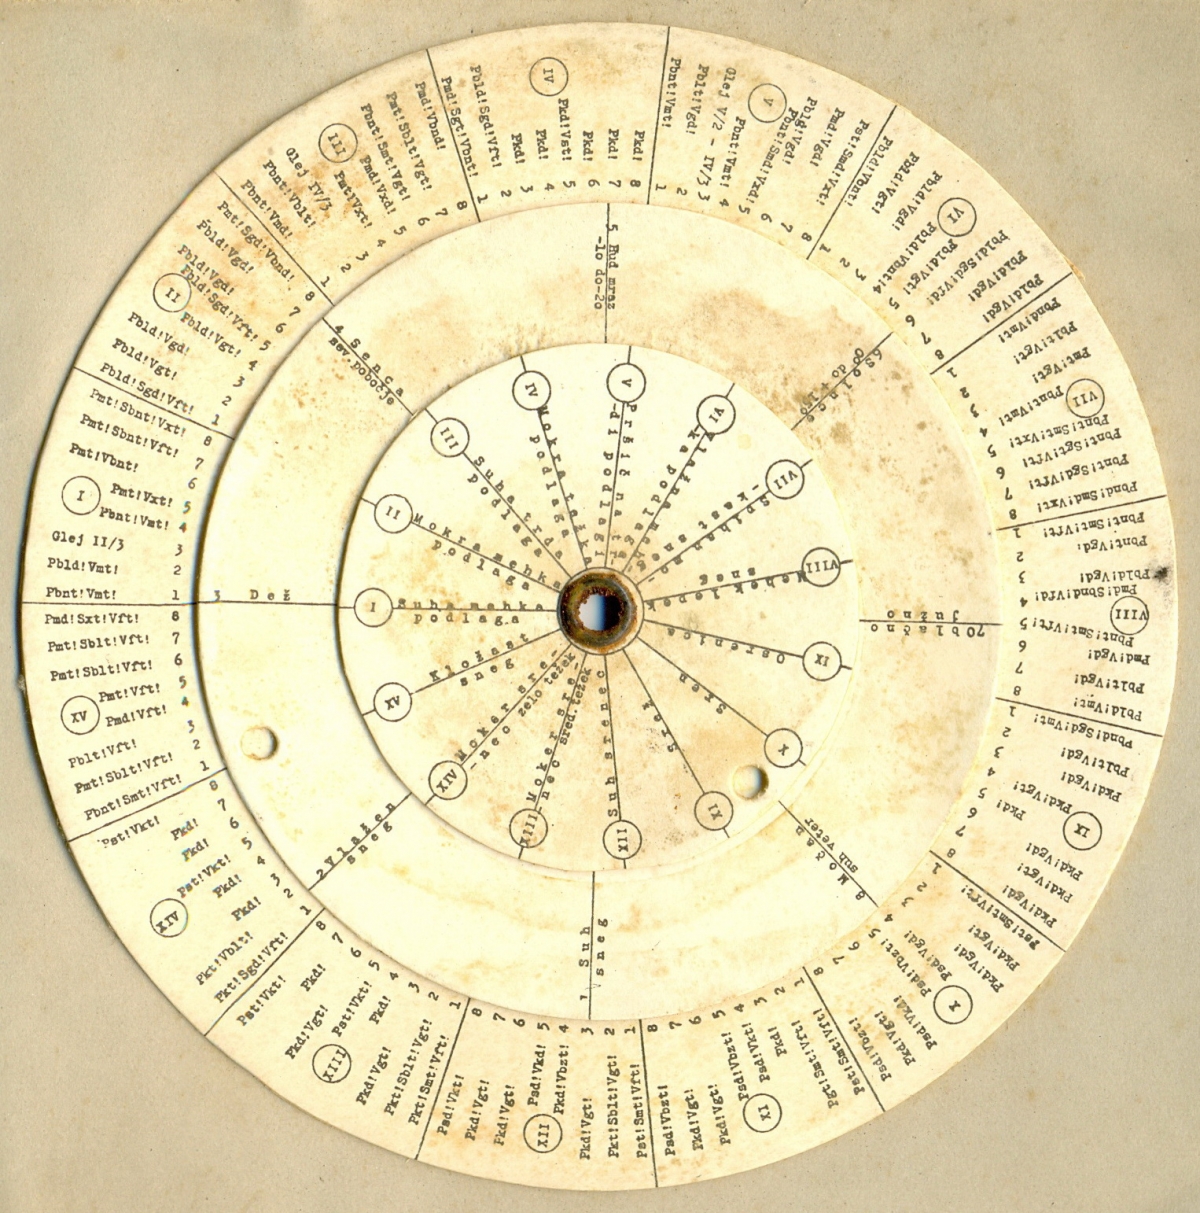 I
Suha mehka
podlaga
II
Mokra mehka
podlaga
III
Suha trda
podlaga
IV
Mokra trda
podlaga
V
Pršič na tr-
di podlagi
VI
VII
VIII
Mehek lepek
sneg
IX
Osrenica
X
Sren
XI
Srež
XII
Suh srenec
XIII
Moker sre-
nec sred.težek
XIV
Moker sre-
nec zelo težek
XV
Kložast
sneg
1 Suh
sneg
2 Vlažen
sneg
3 Dež
4. Senca
sev.pobočje
5 Hud mraz
-10 do-20
6 Solnce
0 do +10
7 Oblačno
južno
8 Močan
suh veter
I
1 Pbnt!Vmt!
2 Pbld!Vmt!
3 Glej II/3
4 Pbnt!Vmt!
5 Pmt!Vxt!
6 Pmt!Vbnt!
7 Pmt!Sbnt!Vft!
8 Pmt!Sbnt!Vxt!
II
1 Pbld!Sgd!Vft!
2 Pbld!Vgt!
3 Pbld!Vgd!
4 Pbld!Vgt!
5 Pbld!Sgd!Vft!
6 Pbld!Vgd!
7 Pbld!Vgd!
8 Pmt!Sgd!Vbnd!
III
1 Pbnt!Vmd!
2 Pbnt!Vblt!
3 Glej IV/3
4 Pmt!Vxt!
5 Pmd!Vxd!
6 Pbnt!Smt!Vgt!
7 Pmt!Sblt!Vgt!
8 Pmd!Vbnd!
IV
1 Pmd!Sgt!Vbnt!
2 Pbld!Sgd!Vft!
3 Pkd!
4 Pkd!
5 Pkd!Vst!
6 Pkd!
7 Pkd!
8 Pkd!
V
1 Pbnt!Vmt!
2 Pblt!Vgd!
3 Glej V/2 - IV/3
4 Pbnt!Vmt!
5 Pbnt!Smd!Vxd!
6 Pbld!Vgd!
7 Pmd!Vgd!
8 Pst!Smd!Vxt!
VI
1 Pbld!Vbnt!
2 Pbld!Vgt!
3 Pbld!Vgd!
4 Pbld!Vbnt!
5 Pbld!Vgt!
6 Pbld!Sgd!Vfd!
7 Pbld!Vgd!
8 Pbld!Vgt!
VII
1 Pbnd!Vmt!
2 Pblt!Vgt!
3 Pmt!Vgt!
4 Pbnt!Vmt!
5 Pbnt!Smt!Vxt!
6 Pbnt!Sgt!Vft!
7 Pbnt!Sgd!Vft!
8 Pbnd!Smd!Vxt!
VIII
1 Pbnt!Smt!Vft!
2 Pbnt!Vgd!
3 Pbld!Vgd!
4 Pmd!Sbnd!Vft!
5 Pbnt!Smt!Vft!
6 Pmd!Vgd!
7 Pblt!Vgd!
8 Pbld!Vmt!
IX
1 Pbnd!Sgd!Vmt!
2 Pblt!Vgd!
3 Pkd!Vgd!
4 Pkd!Vgt!
5 Pkd!
6 Pkd!Vgd!
7 Pkd!Vgt!
8 Pkd!Vgd!
X
1 Pst!Smt!Vft!
2 Pkd!Vgt!
3 Pkd!Vgd!
4 Psd!Vgd!
5 Psd!Vbzt!
6 Pkd!Vkd!
7 Pkd!Vgt!
8 Psd!Vbzt!
XI
1 Pst!Smt!Vft!
2 Pgt!Smt!Vft!
3 Pkd!
4 Psd!Vkt!
5 Psd!Vbzt!
6 Pkd!Vgt!
7 Pkd!Vgt!
8 Psd!Vbzt!
XII
1 Pst!Smt!Vft!
2 Pkt!Sblt!Vgt!
3 Pkd!Vgt!
4 Pkd!Vbzt!
5 Psd!Vkd!
6 Pkd!Vgt!
7 Pkd!Vgt!
8 Psd!Vkt!
XIII
1 Pkt!Smt!Vft!
2 Pkt!Sblt!Vgt!
3 Pkd!Vgt!
4 Pkd!
5 Pst!Vkt!
6 Pkd!Vgt!
7 Pkd!
8 Pst!Vkt!
XIV
1 Pkt!Sgd!Vft!
2 Pkt!Vblt!
3 Pkd!
4 Pkd!
5 Pst!Vkt!
6 Pkd!
7 Pkd!
8 Pst!Vkt!
XV
1 Pbnt!Smt!Vft!
2 Pmt!Sblt!Vft!
3 Pblt!Vft!
4 Pmd!Vft!
5 Pmt!Vft!
6 Pmt!Sblt!Vft!
7 Pmt!Sblt!Vft!
8 Pmd!Sxt!Vft!